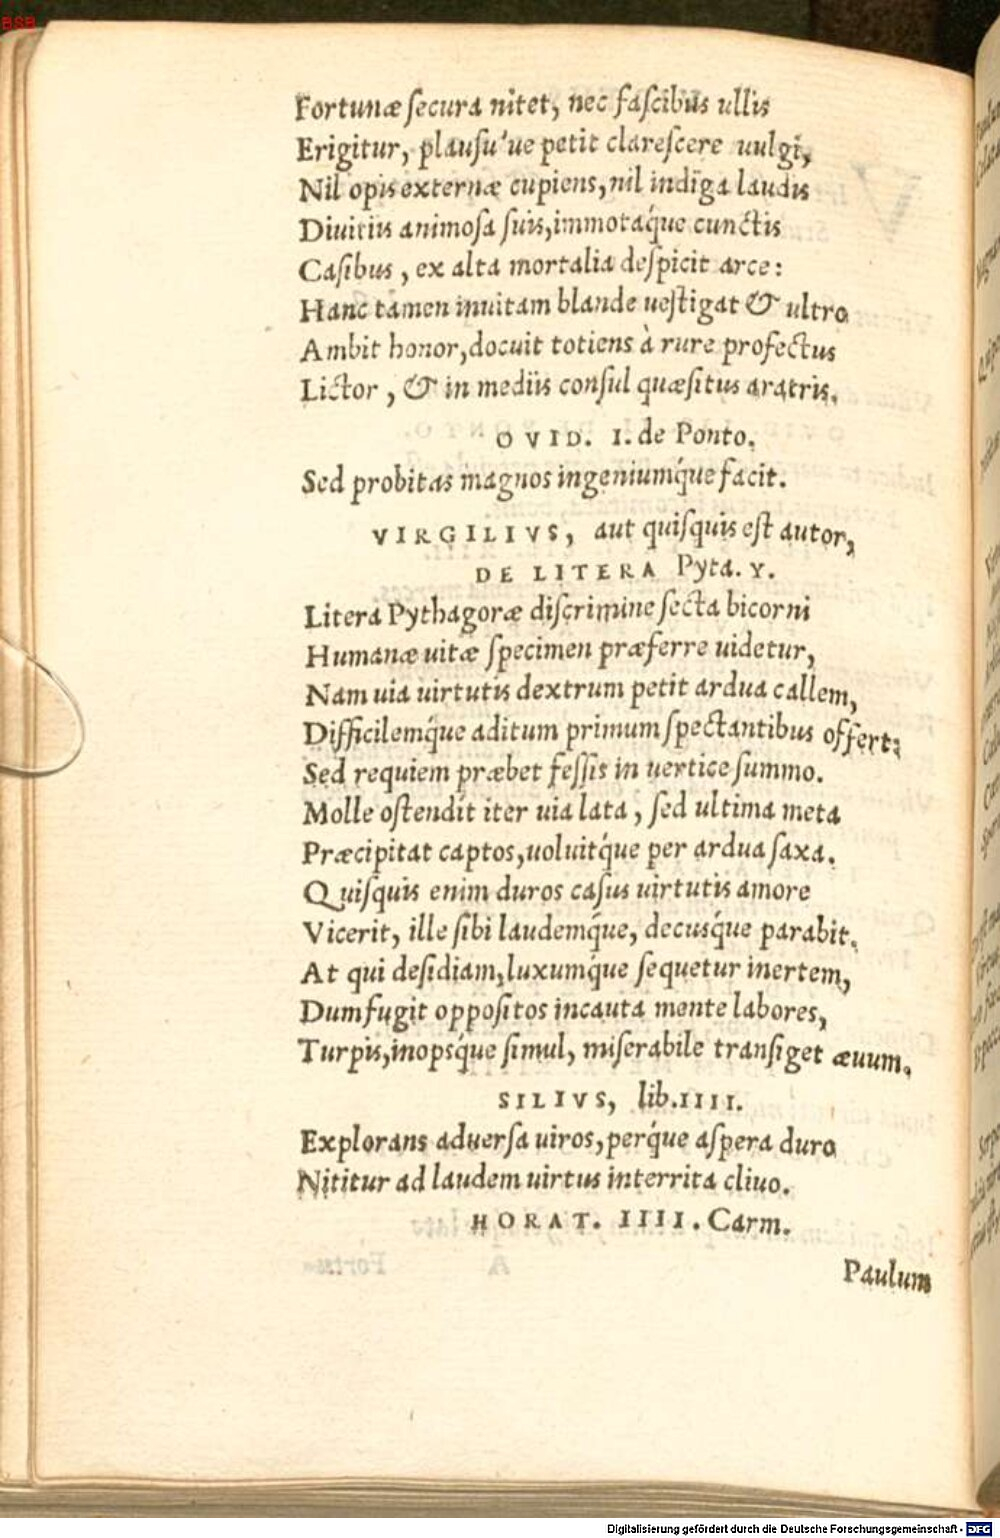 BSB
Fortunæ ſecura nitet, nec faſcibus ullis
Erigitur, plauſu'ue petit clareſcere uulgi,
Nil opis externæ cupiens, nil indiga laudis
Diuitiis animoſa ſuis, immotaq́ue cunctis
Caſibus, ex alta mortalia deſpicit arce:
Hanc tamen inuitam blande ueſtigat & ultro
Ambit honor, docuit totiens à rure profectus
Lictor, & in mediis conſul quæſitus aratris.
OVID. I. de Ponto.
Sed probitas magnos ingeniumq́ue facit.
VIRGILIVS, aut quiſquis eſt autor,
DE LITERA Pyta. Y.
Litera Pythagoræ diſcrimine ſecta bicorni
Humanæ uitæ ſpecimen præferre uidetur,
Nam uia uirtutis dextrum petit ardua callem,
Difficilemq́ue aditum primum ſpectantibus offert:
Sed requiem præbet feſſis in uertice ſummo.
Molle oſtendit iter uia lata, ſed ultima meta
Præcipitat captos, uoluitq́ue per ardua ſaxa.
Quiſquis enim duros caſus uirtutis amore
Vicerit, ille ſibi laudemq́ue, decusq́ue parabit.
At qui deſidiam, luxumq́ue ſequetur inertem,
Dum fugit oppoſitos incauta mente labores,
Turpis, inopsq́ue ſimul, miſerabile tranſiget æuum.
SILIVS, lib. IIII.
Explorans aduerſa uiros, perq́ue aſpera duro
Nititur ad laudem uirtus interrita cliuo.
HORAT. IIII. Carm.
Paulum
Digitalisierung gefördert durch die Deutsche Forschungsgemeinschaft - DFG